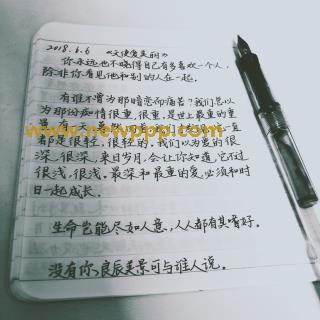 2018.6.6 《天使爱美丽》
你永远也不晓得自己有多喜欢一个人,
除非你看见他和别的人在一起。
有谁不曾为那暗恋而痛苦?我们总以
为那份痴情很重,很重,是世上最重的重
www.newppp.com
都是很轻,很轻的。我们以为爱的很
深,很深,来日岁月,会让你知道,它不过
很浅,很浅。最深和最重的爱,必须和时
日一起成长。
生命岂能尽如人意,人人都有其嗜好。
没有你、良辰美景可与谁人说。